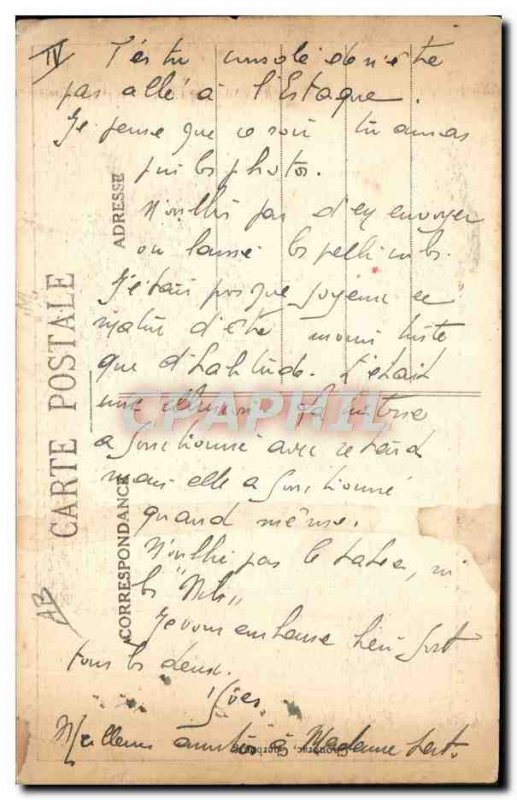 IV T'es tu consolé de n'être
pas allé à l'Estaque.
Je pense que ce soir tu auras
pris les photos.
N'oublie pas d'en envoyer
ou laisse les pellicules.
J'étais presque joyeux ce
matin d'être moins triste
que d'habitude. C'était
une illusion. La tristesse
a fonctionné avec retard
mais elle a fonctionné
quand même.
N'oublie pas le tabac, ni
les "Nils"
Je vous embrasse bien fort
tous les deux.
Yves
Meilleures amitiés à Madame
CARTE POSTALE
CORRESPONDANCE
ADRESSE
AB
CPAPHIL